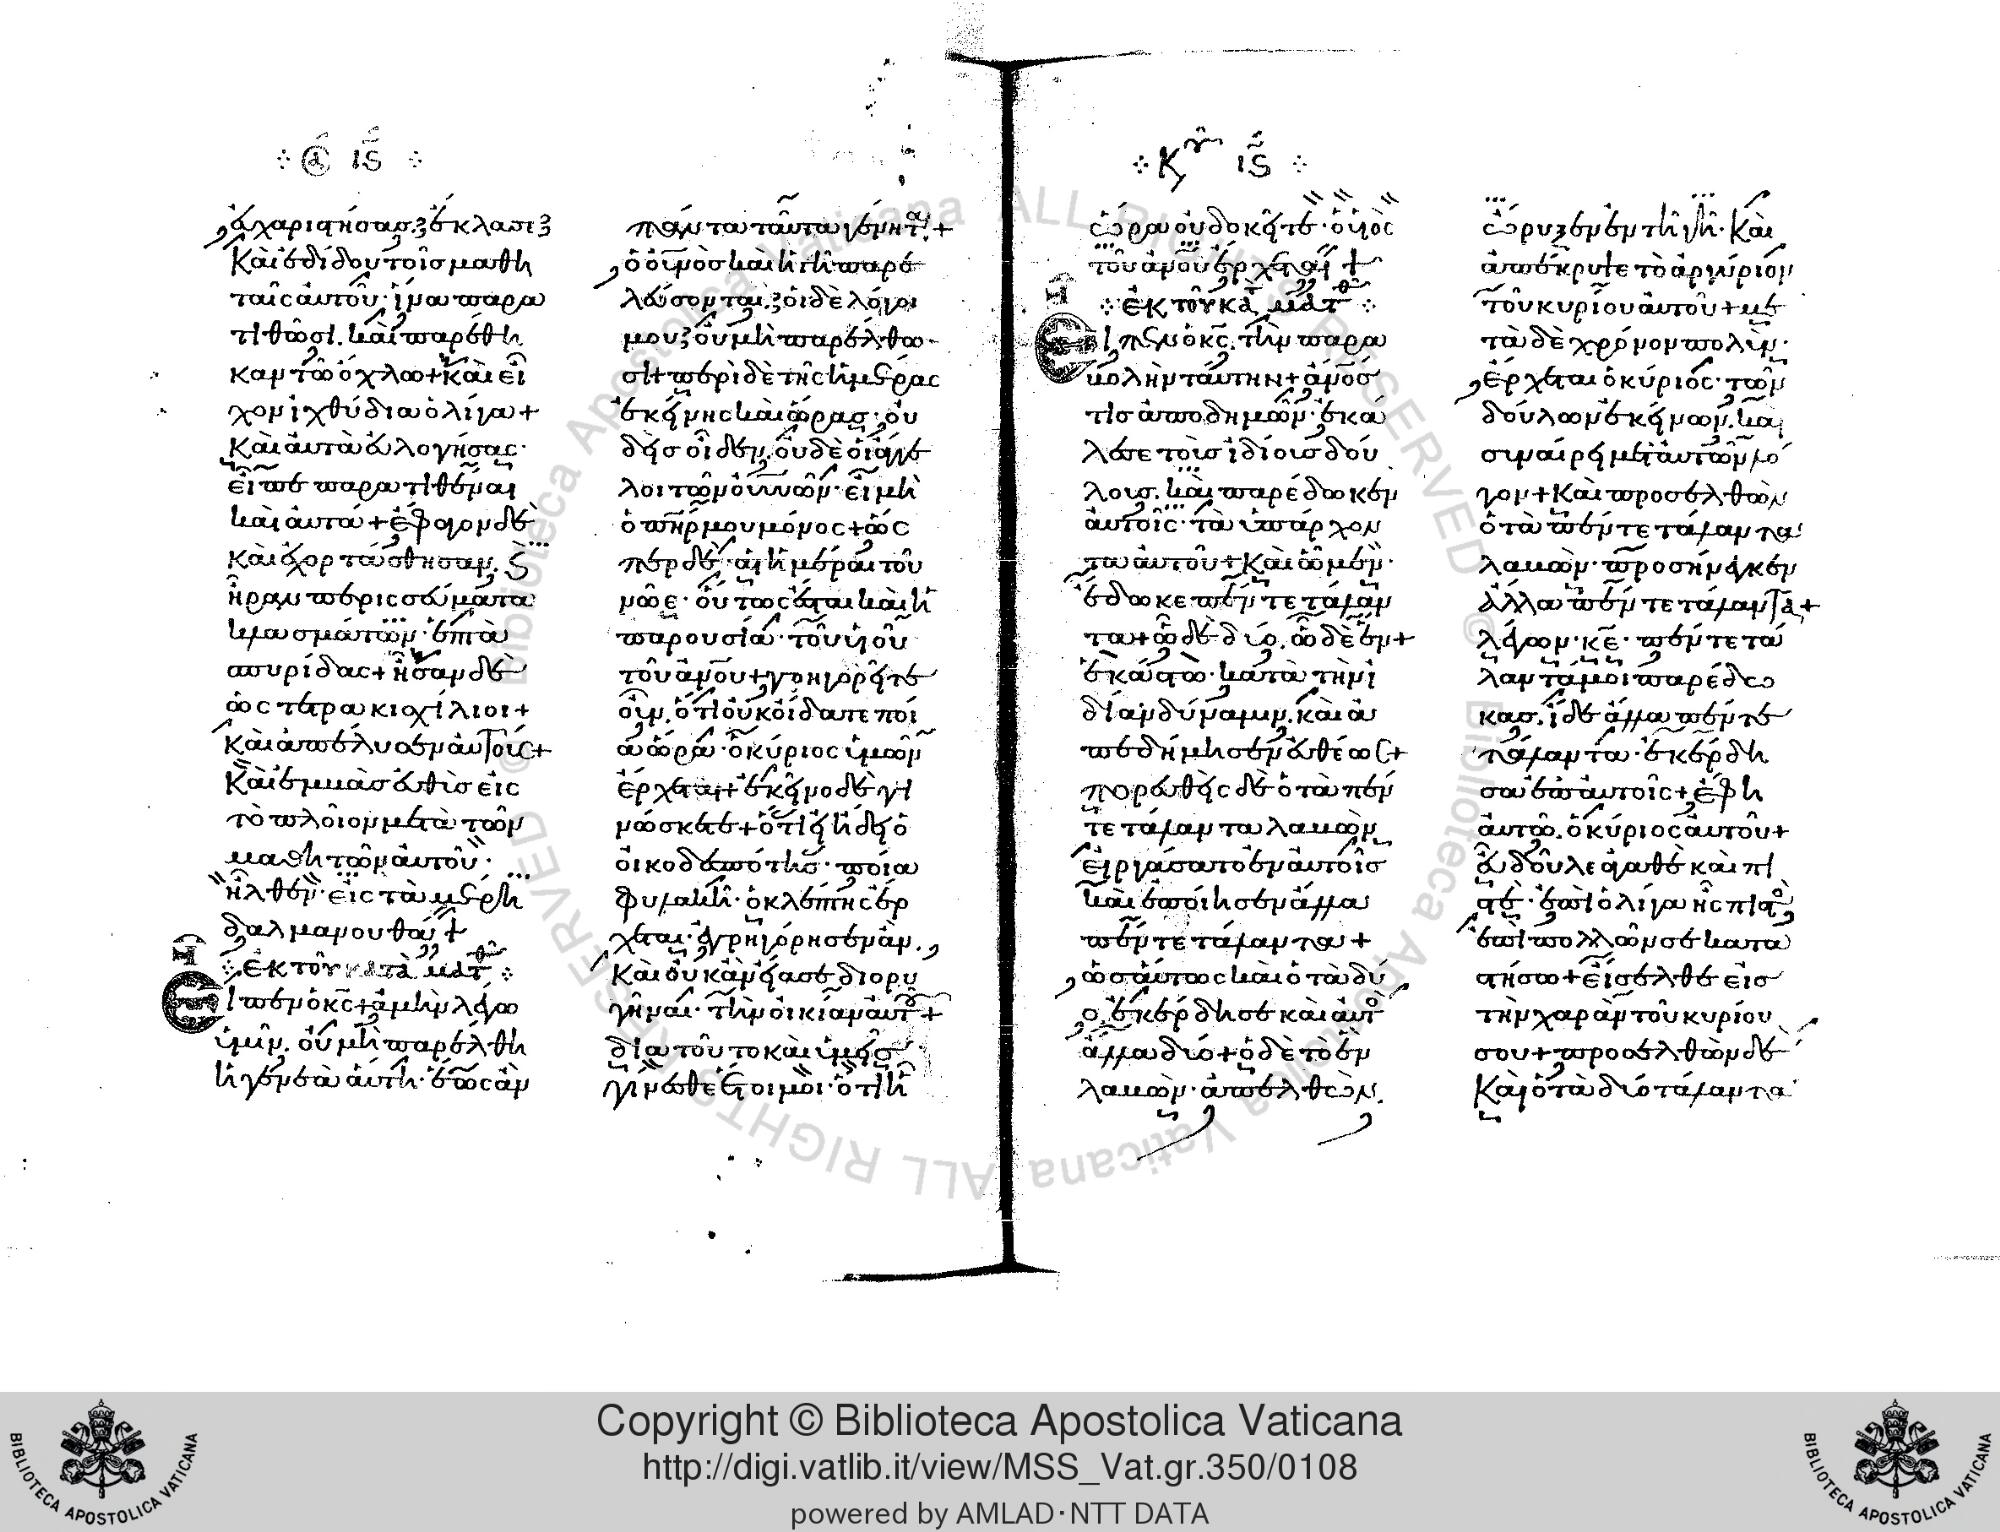 εὐχαριστήσας ἔκλασε
καὶ ἐδίδου τοῖς μαθη
ταῖς αὐτοῦ· ἵνα παρα
τιθῶσι. καὶ παρέθη
καν τῶ ὄχλω+ καὶ εἶ
χον ἰχθύδια ὀλίγα+
καὶ αὐτὰ εὐλογήσας·
εἶπε παρατιθέναι
καὶ αὐτά+ ἔφαγον δὲ
καὶ ἐχορτάσθησαν. καὶ
ἦραν περισσεύματα
κλασμάτων· ἑπτὰ
σπυρίδας+ ἦσαν δὲ
ὡς τετρακισχίλιοι+
καὶ ἀπέλυσεν αὐτούς+
καὶ ἐμβὰς εὐθὺς εἰς
τὸ πλοῖον μετὰ τῶν
μαθητῶν αὐτοῦ·
ἦλθεν· εἰς τὰ μέρη
δαλμανουθά+
ἐκ τοῦ κατὰ ματθ
Εἶπεν ὁ κς+ ἀμὴν λέγω
ὑμῖν. οὐ μὴ παρέλθη
ἡ γενεὰ αὕτη· ἕως ἂν
πάντα ταῦτα γένηται+
ὁ οὐνος καὶ ἡ γῆ παρε
λεύσονται. οἱ δὲ λόγοι
μου οὐ μὴ παρέλθω
σι+ περὶ δὲ τῆς ἡμέρας
ἐκείνης καὶ ὥρας· οὐ
δεὶς οἶδεν. οὐδὲ οἱ ἄγγε
λοι τῶν οὐνῶν· εἰ μὴ
ὁ πηρ μου μόνος+ ὥς
περ δὲ· αἱ ἡμέραι τοῦ
νῶε· οὕτως ἔσται καὶ ἡ
παρουσία· τοῦ υἱοῦ
τοῦ ανου+ γρηγορεῖτε
οὖν. ὅτι οὐκ οἴδατε ποί
α ὥρα· ὁ κύριος ὑμῶν
ἔρχεται+ ἐκεῖνο δὲ γι
νώσκετε+ ὅτι εἰ ἤδει ὁ
οἰκοδεσπότης· ποία
φυλακῆ· ὁ κλέπτης ἔρ
χεται· ἐγρηγόρησεν ἄν.
καὶ οὐκ ἂν εἴασε διορυ
γῆναι· τὴν οἰκίαν αὐτοῦ+
διατοῦτο καὶ ὑμεῖς
γίνεσθε ἕτοιμοι· ὅτι ἧ
Κυ ις
ὥρα οὐ δοκεῖτε· ὁ υἱὸς
τοῦ ανου ἔρχεται+
ἐκ τοῦ κατὰ ματθ
Εἶπεν ὁ κς. τὴν παρα
βολὴν ταύτην+ ανος
τις ἀποδημῶν· ἐκά
λεσε τοὺς ἰδίους δού
λους. καὶ παρέδωκεν
αὐτοῖς· τὰ ὑπάρχον
τα αὐτοῦ+ καὶ ὧ μὲν·
ἔδωκε πέντε τάλαν
τα+ ὧ δὲ δύο. ὧ δὲ ἕν+
ἑκάστω· κατὰ τὴν ἰ
δίαν δύναμιν. καὶ ἀ
πεδήμησεν εὐθέως+
πορευθεὶς δὲ ὁ τὰ πέν
τε τάλαντα λαβὼν
εἰργάσατο ἐν αὐτοῖς
καὶ ἐποίησεν ἄλλα
πέντε τάλαντα+
ὡσαύτως καὶ ὁ τὰ δύ
ο. ἐκέρδησε καὶ αὐτὸς
ἄλλα δύο+ ὁ δὲ τὸ ἓν
λαβὼν· ἀπελθὼν.
ὤρυξεν ἐν τῆ γῆ· καὶ
ἀπέκρυψε τὸ ἀργύριον
τοῦ κυρίου αὐτοῦ+ με
τὰ δὲ χρόνον πολὺν·
ἔρχεται ὁ κύριος· τῶν
δούλων ἐκείνων. καὶ
συναίρει μετ αὐτῶν λό
γον+ καὶ προσελθὼν
ὁ τὰ πέντε τάλαντα
λαβὼν· προσήνεγκεν
ἄλλα πέντε τάλαντα+
λέγων· κε· πέντε τά
λαντά μοι παρέδω
κας. ἴδε ἄλλα πέντε
τάλαντα· ἐκέρδη
σα ἐπ αὐτοῖς+ ἔφη
αὐτῶ. ὁ κύριος αὐτοῦ+
εὖ δοῦλε ἀγαθὲ καὶ πι
στὲ· ἐπὶ ὀλίγα ἦς πιστὸς
ἐπὶ πολλῶν σε κατα
στήσω+ εἴσελθε εἰς
τὴν χαρὰν τοῦ κυρίου
σου+ προσελθὼν δὲ
καὶ ὁ τὰ δύο τάλαντα
Copyright © Biblioteca Apostolica Vaticana
http://digi.vatlib.it/view/MSS_Vat.gr.350/0108
powered by AMLAD·NTT DATA
BIBLIOTECA APOSTOLICA VATICANA
BIBLIOTECA APOSTOLICA VATICANA